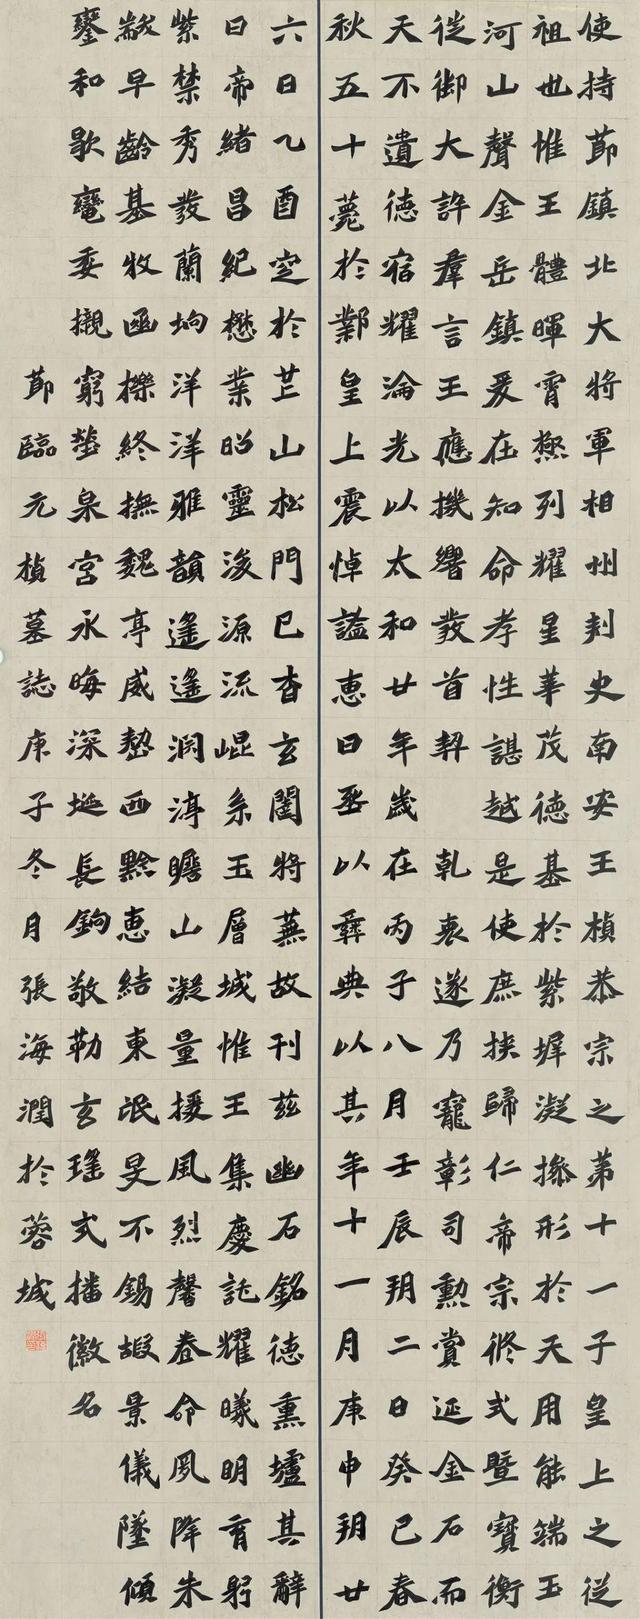 使持節鎮北大將軍相州刾史南安王楨恭宗之第十一子皇上之從
祖也惟王體暉霄極列耀星華茂德基於紫墀凝操形於天用能端玉
河山聲金岳鎮爰在知命孝性諶越是使庶族歸仁帝宗攸式暨寶衡
從御大訏羣言王應機響發首契乾衷遂乃寵彰司勳賞延金石而
天不遺德宿耀淪光以太和廿年歲在丙子八月壬辰朔二日癸巳春
秋五十薨於鄴皇上震悼諡惠曰以彝典以其年十一月庚申朔廿
六日乙酉窆於芒山松門已杳玄闥將蕪故刊茲幽石銘德熏壚其辭
曰帝緒昌紀懋業昭靈浚源流崐系玉層城惟王集慶託耀曦明育躬
紫禁秀發蘭坰洋洋雅韻遙遙淵渟瞻山凝量援風烈馨卷命夙降朱
黻早齡基牧函櫟終撫魏亭威懃西黔惠結東氓旻不錫嘏景儀墜傾
鑾和歇委櫬窮塋泉宮永晦深埏長鉤敬勒玄瑤式播徽名
節臨元楨墓誌庚子冬月張海潤於蓉城